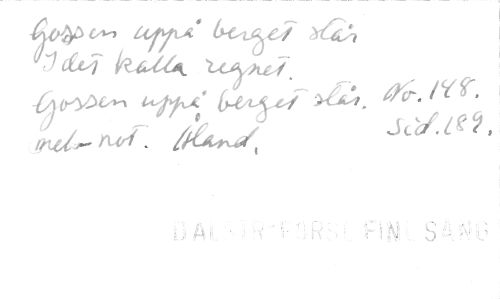 Gossen uppå berget står
I det kalla regnet.
Gossen uppå berget står. No. 148.
mel-not. Åland. Sid. 189.
FINL SÅNG